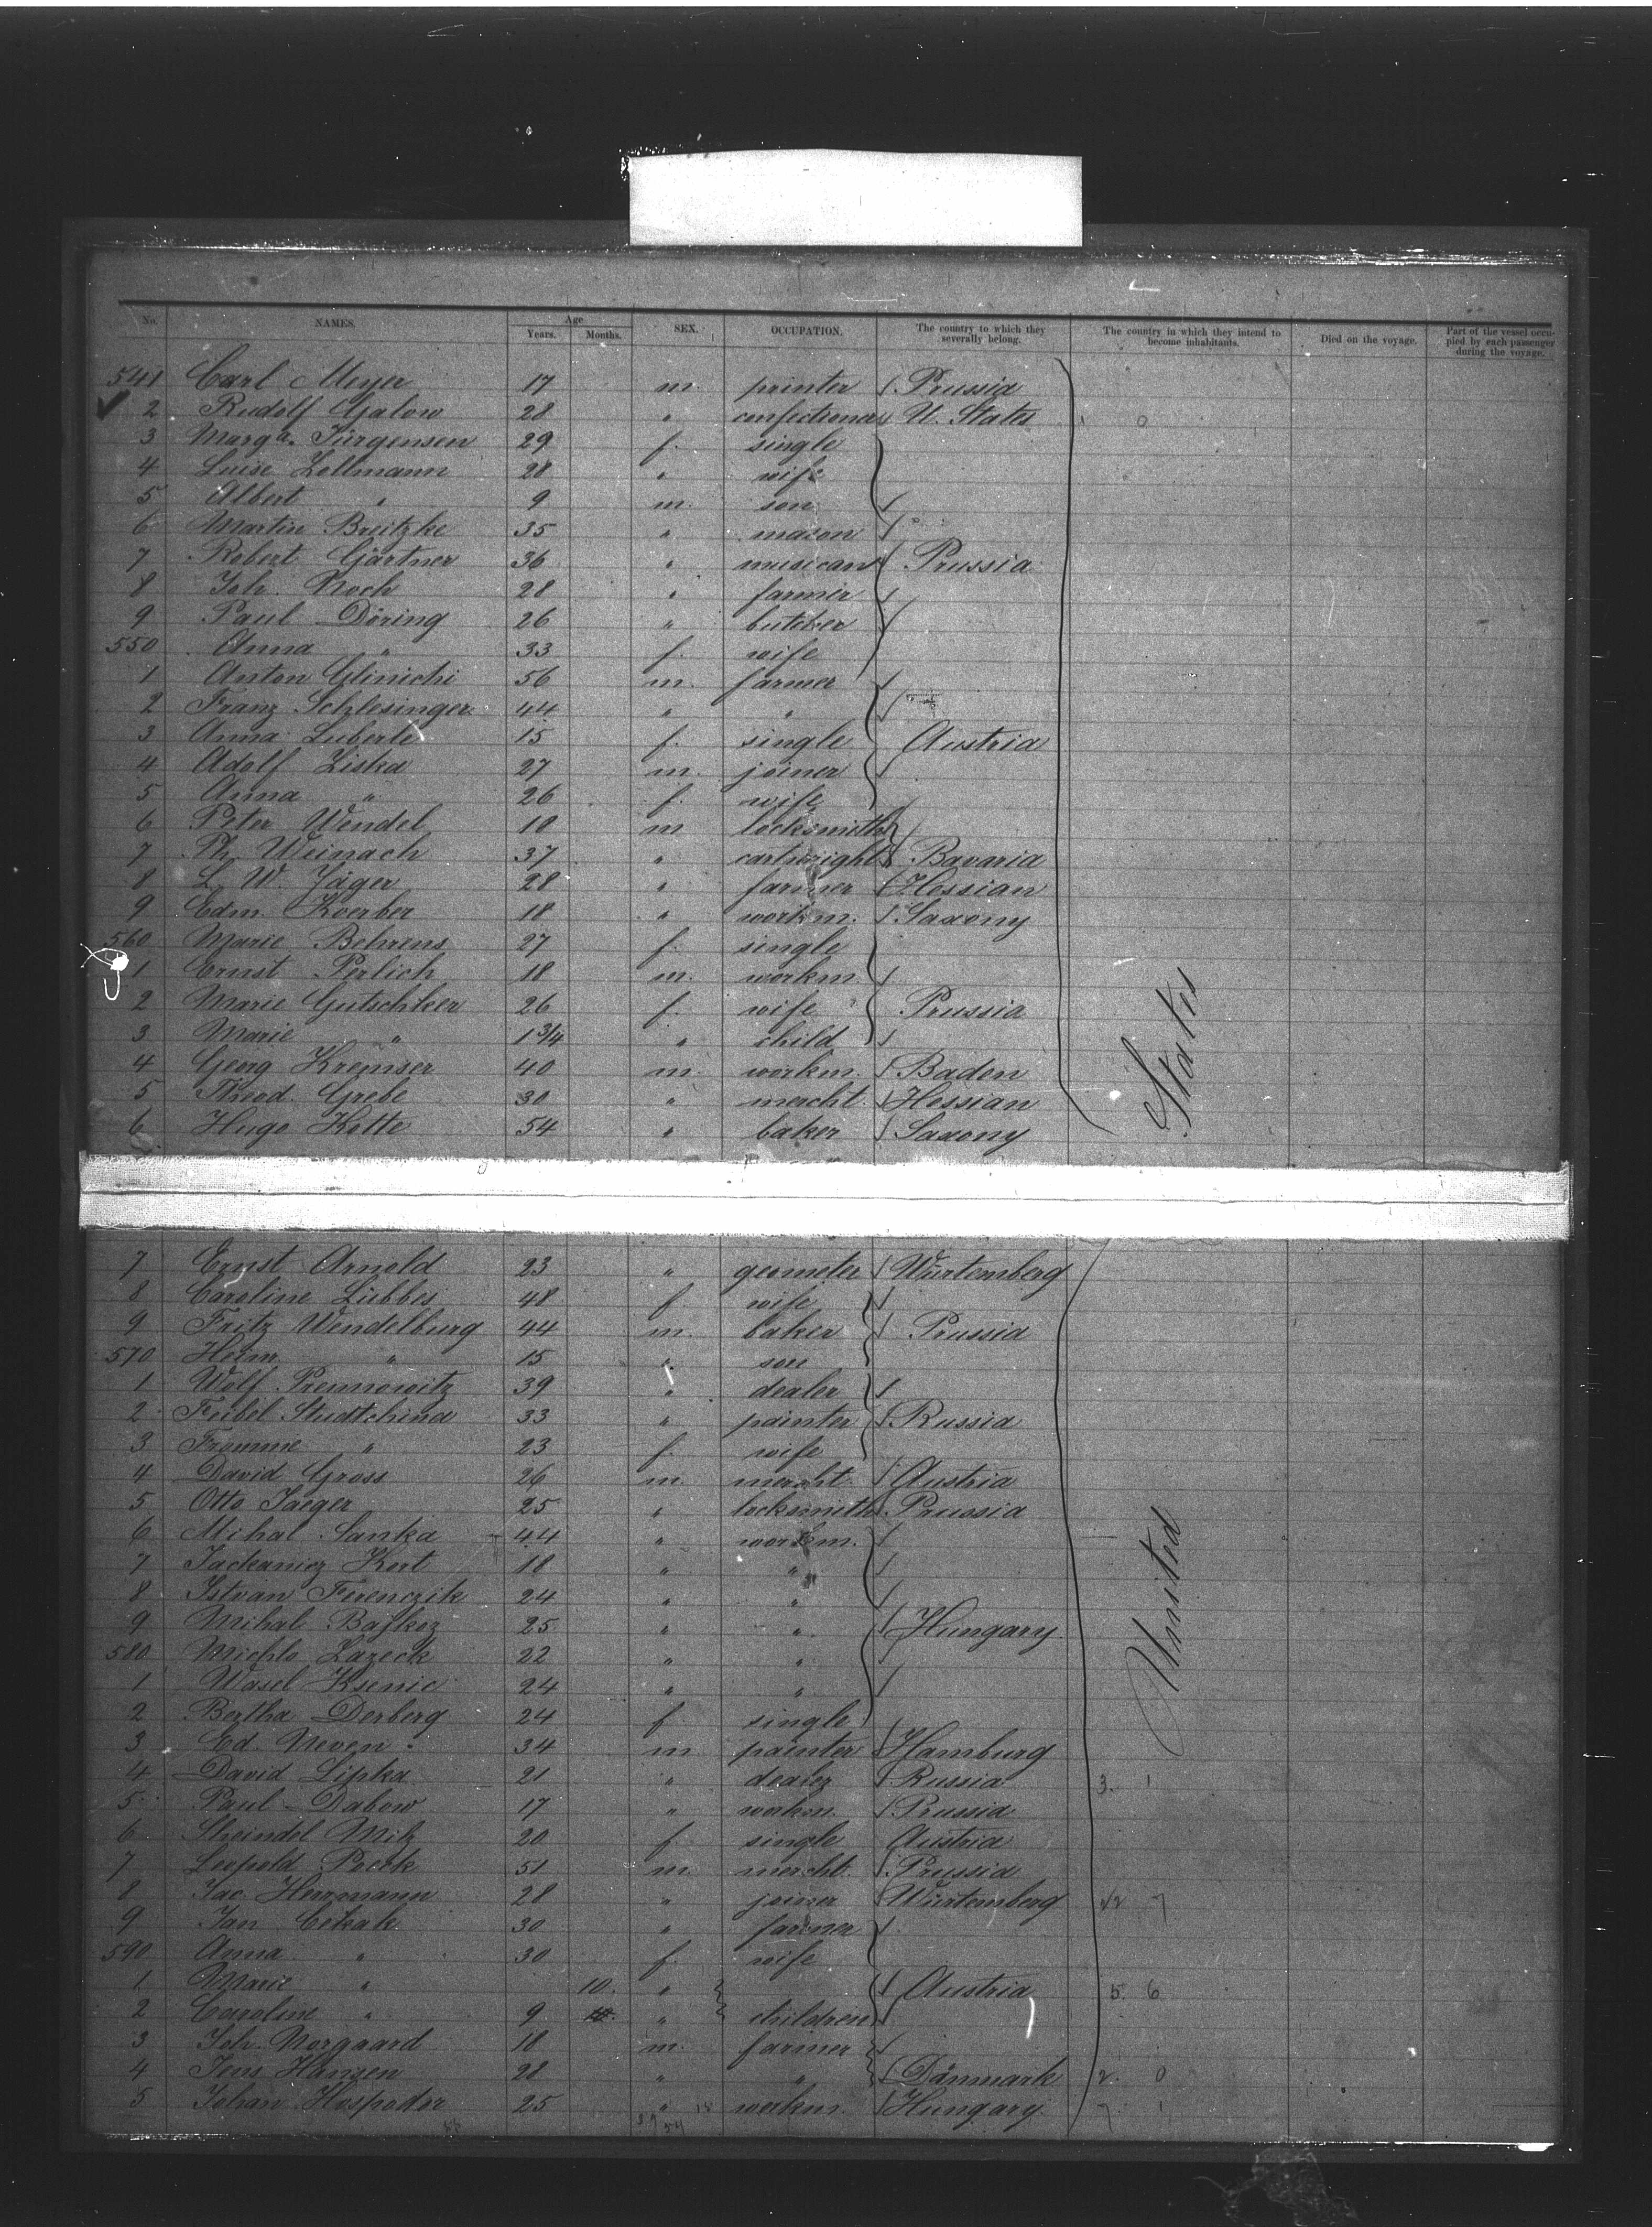 No. NAMES. Age Years. Months. SEX. OCCUPATION. The country to which they severally belong. The country in which they intend to become inhabitants. Died on the voyage. Part of the vessel occupied by each passenger during the voyage.
541 Carl Meyer 17 m. printer Prussia
2 Rudolf Galow 28 " confectioner U. States 0
3 Marga. Jürgensen 29 f. single
4 Luise Zellmann 28 " wife
5 Albert " 9 m. son
6 Martin Breitzke 35 " mason
7 Robert Gärtner 36 " musican Prussia
8 Joh. Noch 28 " farmer
9 Paul Döring 26 " butcher
550 Anna " 33 f. wife
1 Anton Glinichi 56 m. farmer
2 Franz Schlesinger 44 " "
3 Anna Luberle 15 f. single Austria
4 Adolf Liska 27 m. joiner
5 Anna " 26 f. wife
6 Peter Wendel 18 m locksmith
7 Ph. Weinach 37 " cartwright Bavaria
8 L. W. Jäger 28 " farmer Hessian
9 Edm. Koerber 18 " workm. Saxony
560 Marie Behrens 27 f. single
1 Ernst Perlich 18 m. workm.
2 Marie Gutschker 26 f. wife Prussia
3 Marie " 1 3/4 " child
4 Georg Kremser 40 m. workm. Baden
5 Theod. Grebe 30 " mercht. Hessian
6 Hugo Kette 54 " baker Saxony
States
7 Ernst Arnold 23 " geometer Würtemberg
8 Caroline Lübbes 48 f wife
9 Fritz Wendelburg 44 m. baker Prussia
570 Heinr. " 15 " son
1 Wolf Premowitz 39 " dealer
2 Feibel Studtchina 33 " painter Russia
3 Fromme " 23 f. wife
4 David Gross 26 m. mercht. Austria
5 Otto Jaeger 25 " locksmith Prussia
6 Mihal Sanka 44 " workm.
7 Kert 18 " "
8 Istvan Ferenczik 24 " "
9 Mihal 25 " " Hungary
580 Michlo Lazeck 22 " "
1 Wasel Ksenic 24 " "
2 Bertha Derberg 24 f single
3 Ed. Neven 34 m painter Hamburg
4 David Lipka 21 " dealer Russia 3. 1
5 Paul Dabow 17 " workm. Prussia
6 Sheindel Milz 20 f. single Austria
7 Leopold Pocek 51 m. mercht. Prussia
8 Jac. Herrmann 28 " joiner Würtemberg 7
9 Jan Cekak 30 " farmer
590 Anna " 30 f. wife
1 Marie " 10. " Austria 5. 6
2 Caroline " 9 " children
3 Joh. Norgaard 18 m. farmer
4 Jens Hansen 28 " " Dänmark 2. 0
5 Johan Hospodar 25 " workm. Hungary 7. 1
United